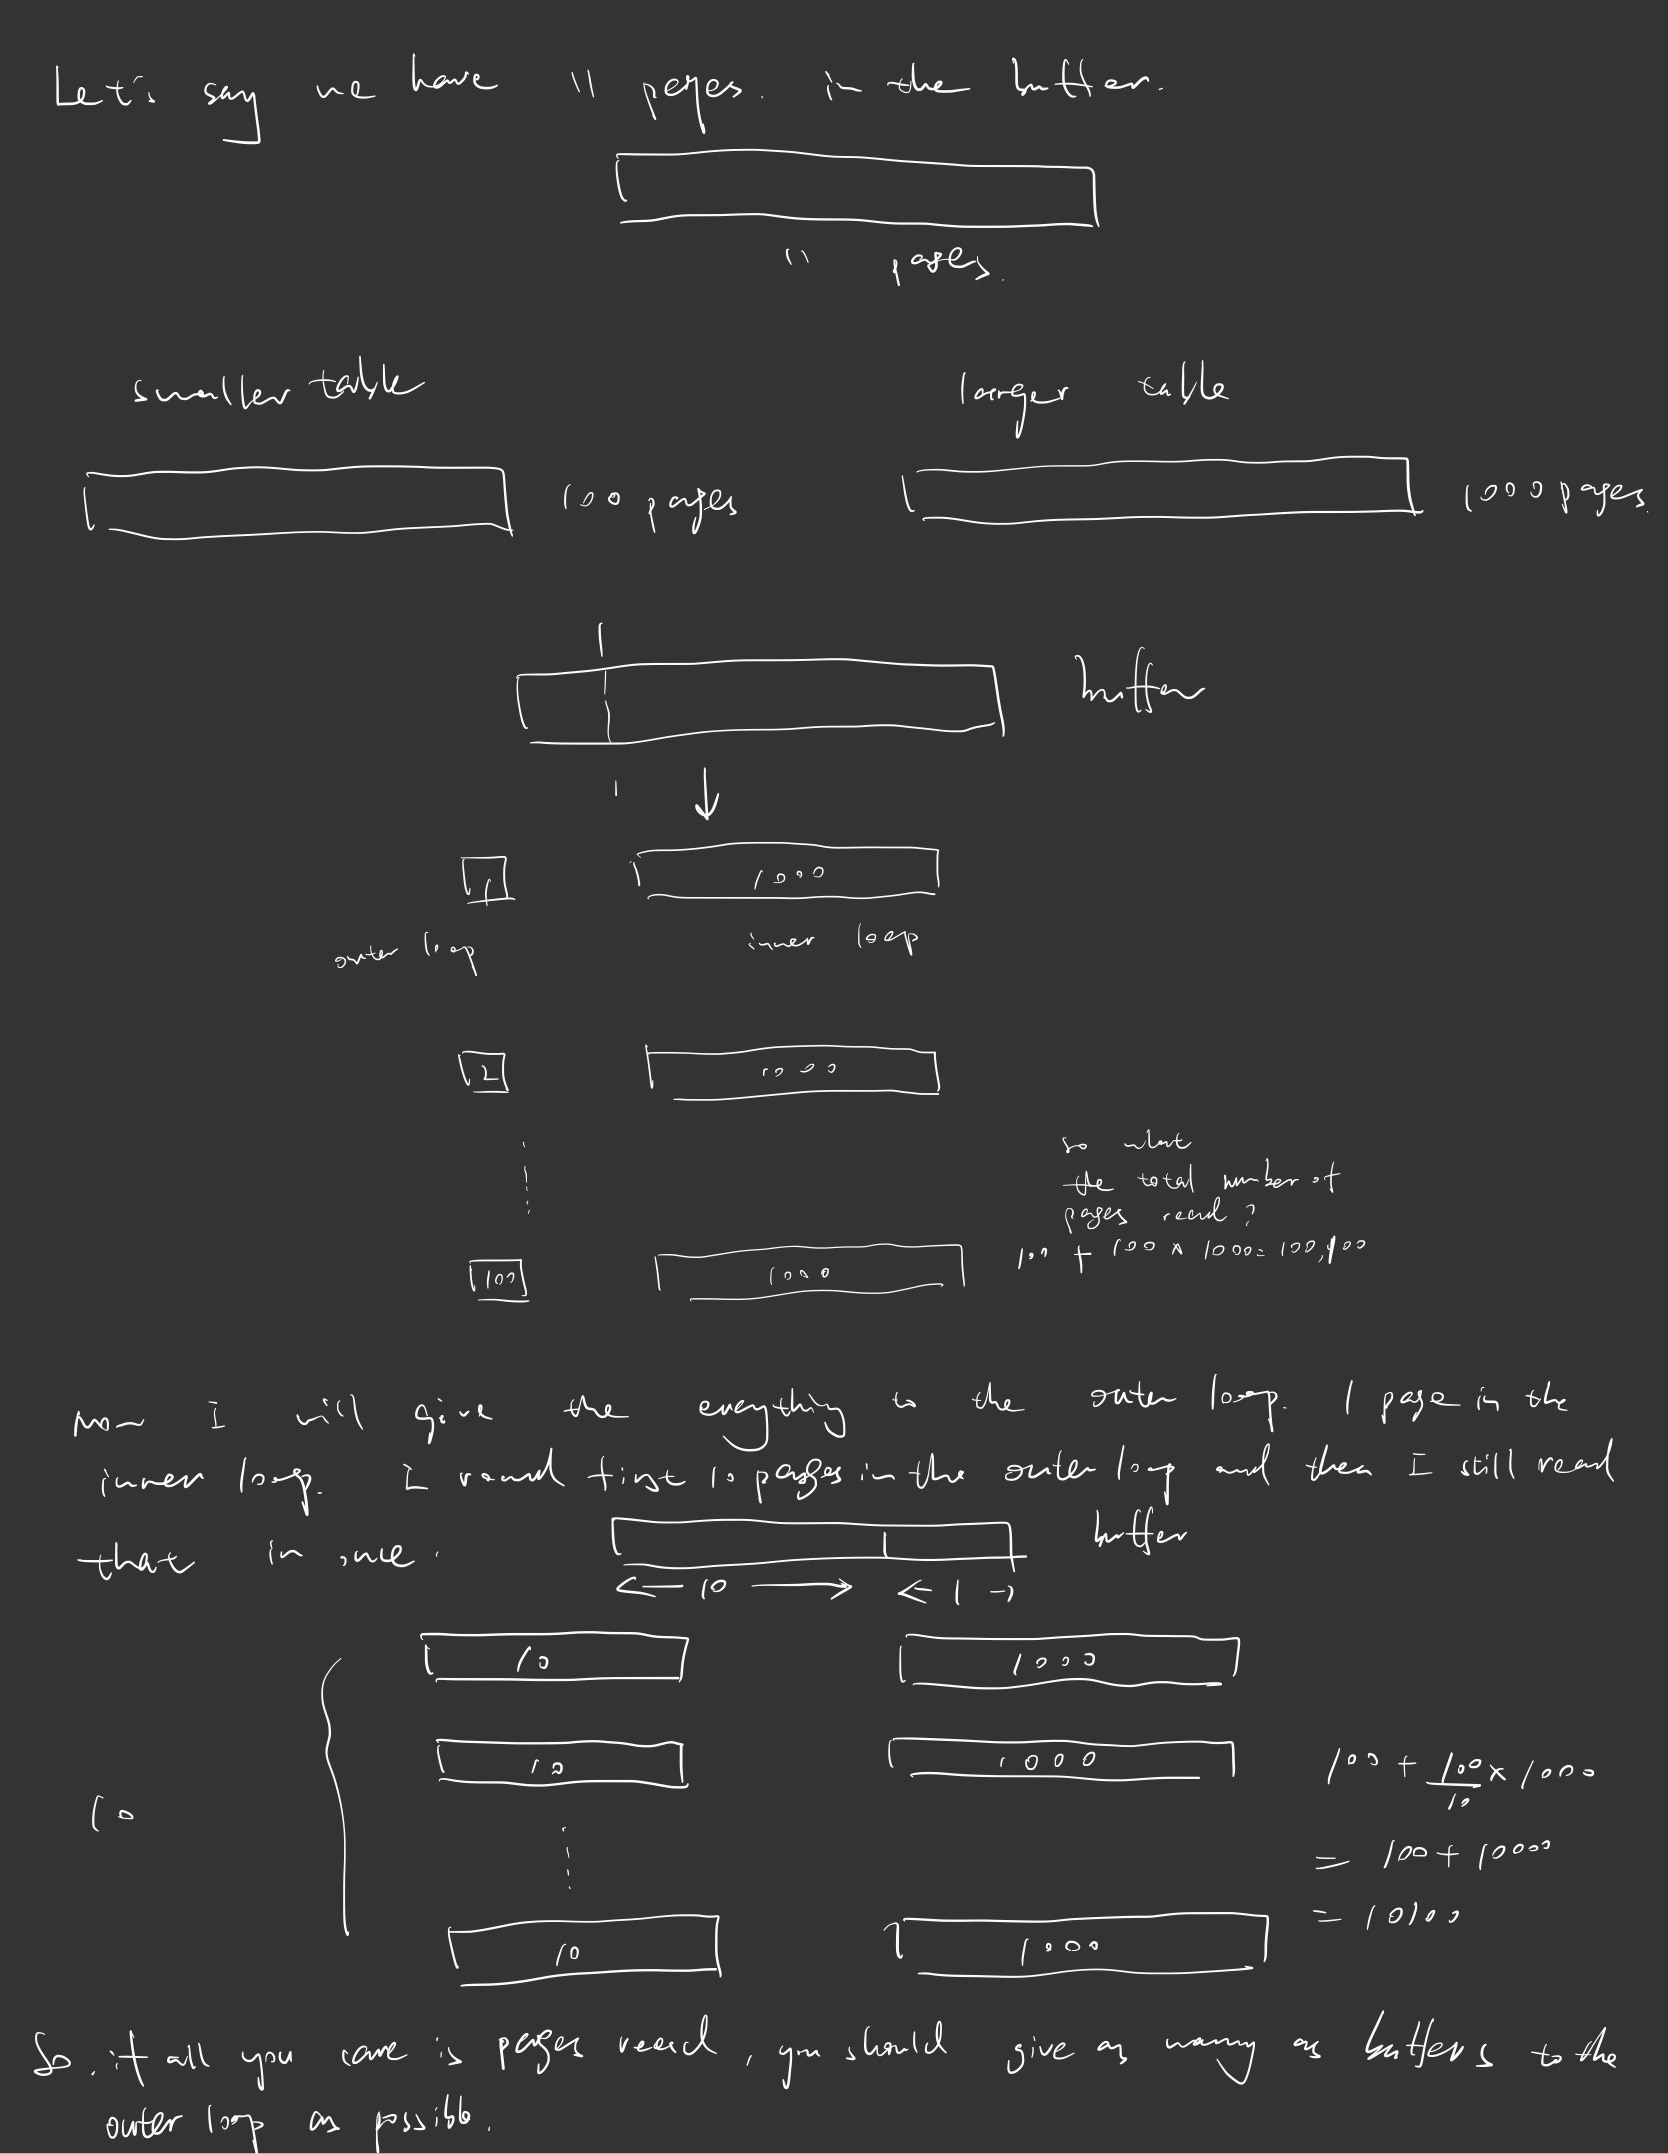 Let's say we have 11 pages. in the buffer.
11 pages.
smaller table
larger table
100 pages
1000 pages.
1
buffer
1
1
1000
outer loop
inner loop
2
1000
so what
the total number of
pages read?
100 + 100 × 1000 = 100,100
100
1000
now I will give the everything to the outer loop. 1 page in the
inner loop. I read first 10 pages in the outer loop and then I still read
that in once.
buffer
10
1
10
1000
10
1000
100 + 100/10 × 1000
10
= 100 + 10000
= 10100
10
1000
So, if all you care is pages read, you should give as many as buffers to the
outer loop as possible.